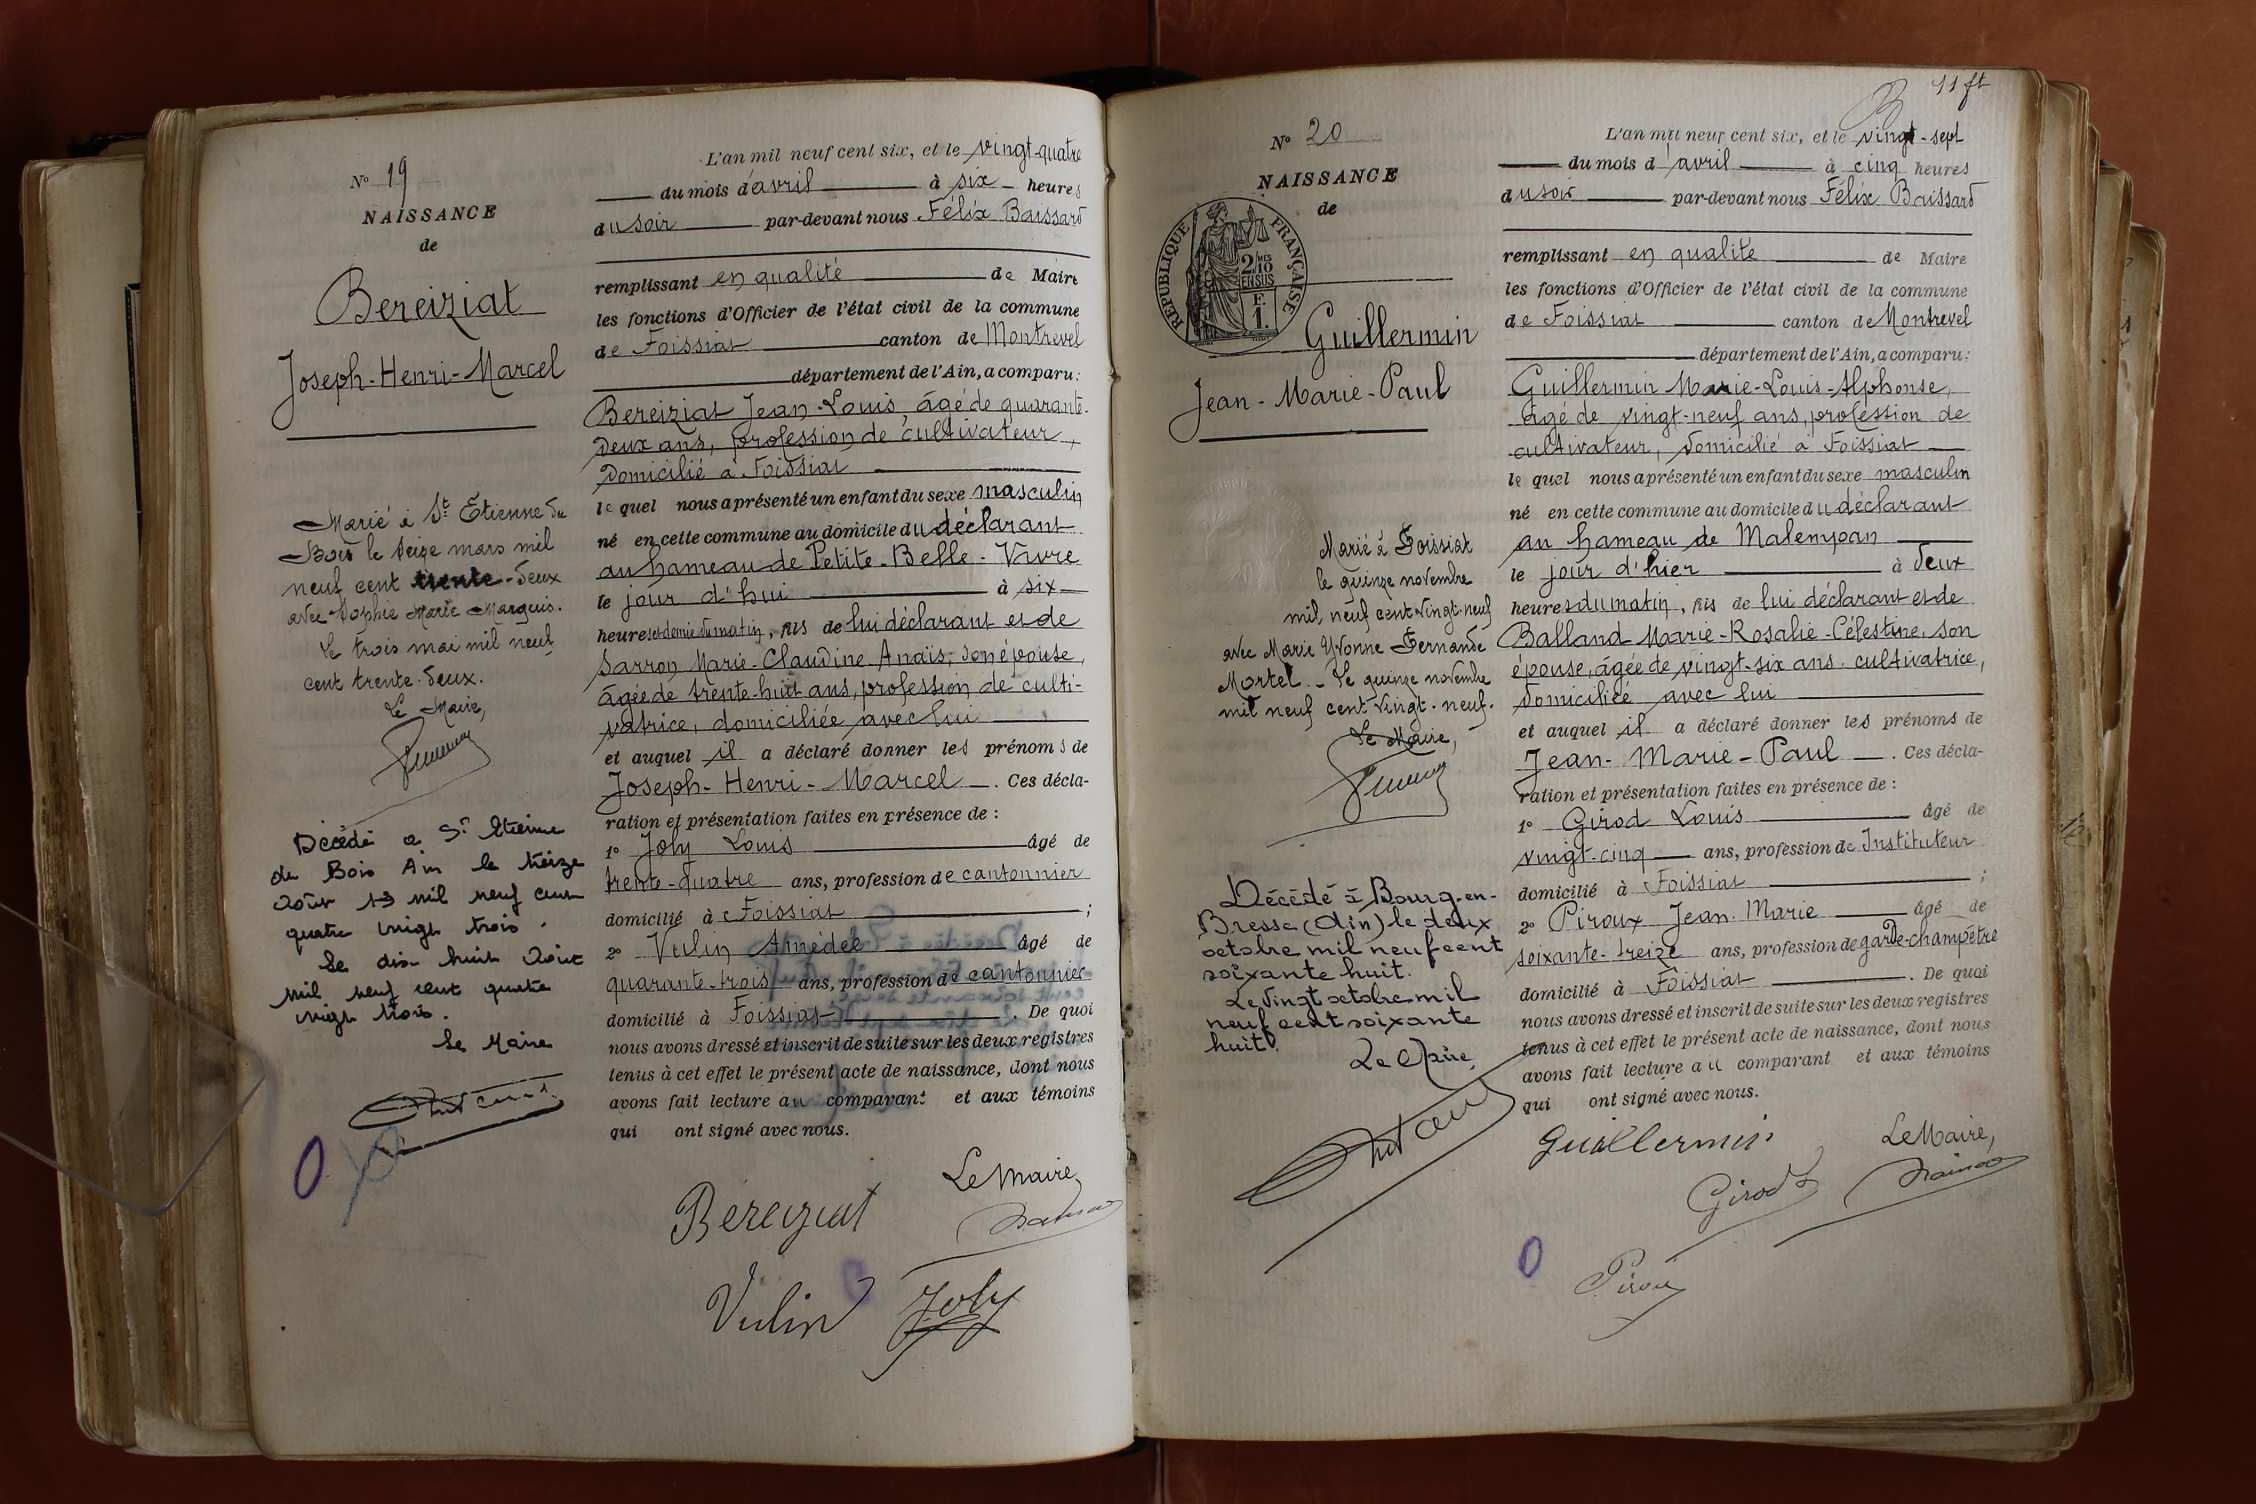 Nº 19
NAISSANCE
de
Bereiziat
Joseph-Henri-Marcel
Marié à St Etienne du
Bois le seize mars mil
neuf cent trente-deux
avec Sophie Marie Marguis.
Le trois mai mil neuf
cent trente-deux.
Le Maire,
Décédé a St Etienne
du Bois Ain le treize
Août 13 mil neuf cent
quatre vingt trois.
Le dix huit Août
mil neuf cent quatre
vingt trois.
Le Maire
L'an mil neuf cent six, et le vingt-quatre
du mois d'avril à six heures
du soir par-devant nous Félix Baissard
remplissant en qualité de Maire
les fonctions d'Officier de l'état civil de la commune
de Foissiat canton de Montrevel
département de l'Ain, a comparu:
Bereiziat Jean-Louis, âgé de quarante-
deux ans, profession de cultivateur,
domicilié à Foissiat
lequel nous a présenté un enfant du sexe masculin
né en cette commune au domicile du déclarant
au hameau de Petite-Belle-Vavre
le jour d'hui à six
heures et demie du matin, fils de lui déclarant et de
Sarron Marie-Claudine-Anaïs, son épouse,
âgée de trente-huit ans, profession de culti-
vatrice, domiciliée avec lui
et auquel il a déclaré donner les prénoms de
Joseph-Henri-Marcel. Ces décla-
ration et présentation faites en présence de :
1º Joly Louis âgé de
trente-quatre ans, profession de cantonnier
domicilié à Foissiat ;
2º Vulin Amédée âgé de
quarante-trois ans, profession de cantonnier
domicilié à Foissiat. De quoi
nous avons dressé et inscrit de suite sur les deux registres
tenus à cet effet le présent acte de naissance, dont nous
avons fait lecture au comparant et aux témoins
qui ont signé avec nous.
Le Maire
Béréziat
Vulin Joly
11 ft
Nº 20
NAISSANCE
de
RÉPUBLIQUE FRANÇAISE
2/10 MES
EN SUS
F.
1.
Guillermin
Jean-Marie-Paul
Marié à Foissiat
le quinze novembre
mil neuf cent vingt-neuf
avec Marie Yvonne Fernande
Mortel. - Le quinze novembre
mil neuf cent vingt-neuf.
Le Maire,
Décédé à Bourg-en-
Bresse (Ain) le deux
octobre mil neuf cent
soixante huit.
Le vingt octobre mil
neuf cent soixante
huit.
Le Maire,
L'an mil neuf cent six, et le vingt-sept
du mois d'avril à cinq heures
du soir par-devant nous Félix Baissard
remplissant en qualité de Maire
les fonctions d'Officier de l'état civil de la commune
de Foissiat canton de Montrevel
département de l'Ain, a comparu:
Guillermin Marie-Louis-Alphonse,
âgé de vingt-neuf ans, profession de
cultivateur, domicilié à Foissiat
lequel nous a présenté un enfant du sexe masculin
né en cette commune au domicile du déclarant
au hameau de Malenyoan
le jour d'hier à deux
heures du matin, fils de lui déclarant et de
Balland Marie-Rosalie-Célestine, son
épouse, âgée de vingt-six ans, cultivatrice,
domiciliée avec lui
et auquel il a déclaré donner les prénoms de
Jean-Marie-Paul. Ces décla-
ration et présentation faites en présence de :
1º Girod Louis âgé de
vingt-cinq ans, profession de Instituteur
domicilié à Foissiat ;
2º Piroux Jean-Marie âgé de
soixante-treize ans, profession de garde-champêtre
domicilié à Foissiat. De quoi
nous avons dressé et inscrit de suite sur les deux registres
tenus à cet effet le présent acte de naissance, dont nous
avons fait lecture au comparant et aux témoins
qui ont signé avec nous.
Guillermin Le Maire,
Girod